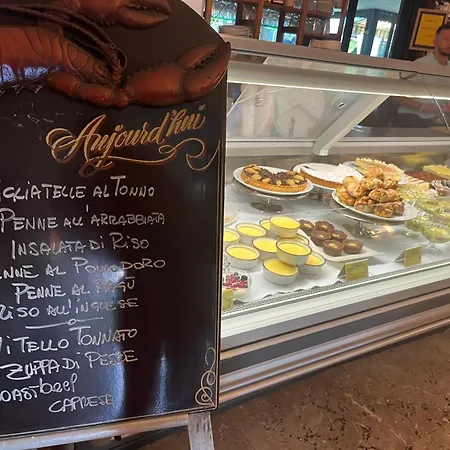 Aujourd'hui
GLIATELLE AL TONNO
PENNE ALL'ARRABBIATA
INSALATA DI RISO
NNE AL POMODORO
PENNE AL RAGÙ
RISO ALL'INGLESE
TELLO TONNATO
ZUPPA DI PESCE
OASTBEEF
CAPRESE